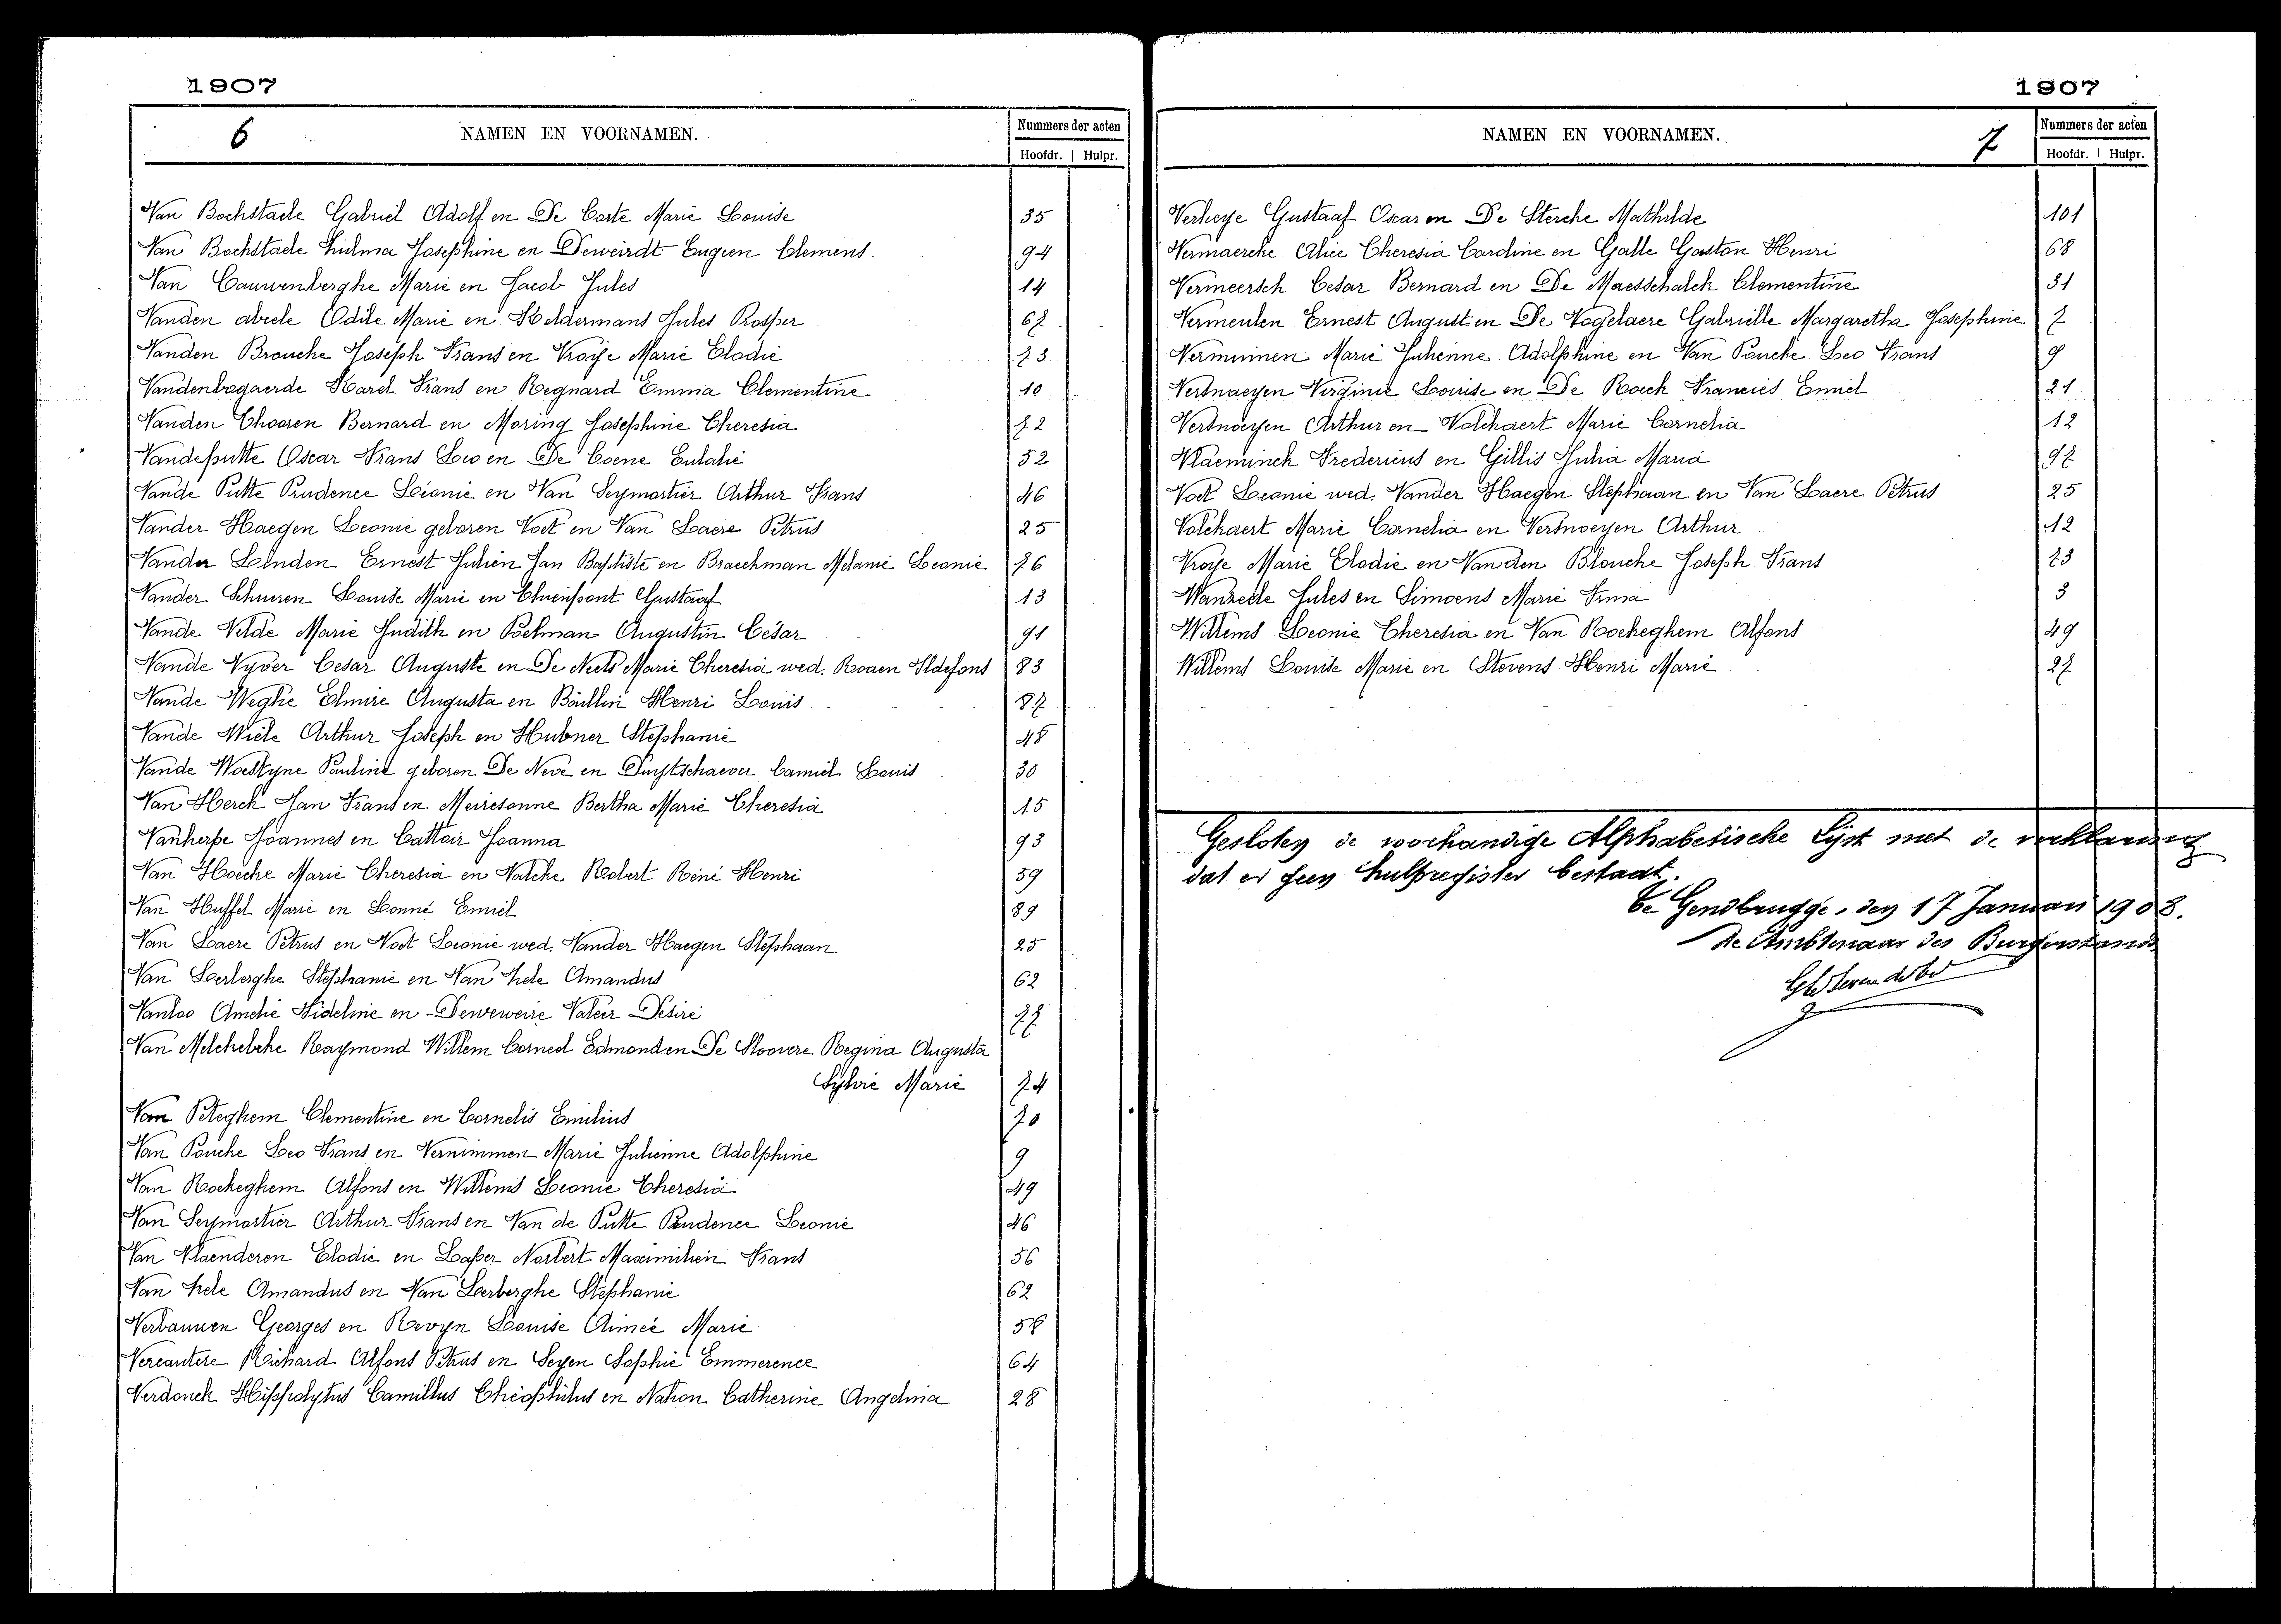 1907
6 NAMEN EN VOORNAMEN. Nummers der acten
Hoofdr. Hulpr.
Van Bockstaele Gabriël Adolf en De Corte Marie Louise 35
Van Bockstaele Zulma Josephine en Deweirdt Eugeen Clemens 94
Van Cauwenberghe Marie en Jacob Jules 14
Vanden abeele Odile Marie en Heldermans Jules Prosper 67
Vanden Broucke Joseph Frans en Vroye Marie Elodie 73
Vandenbogaerde Karel Frans en Regnard Emma Clementine 10
Vanden Thooren Bernard en Moring Josephine Theresia 72
Vandeputte Oscar Frans Leo en De Coene Eulalie 52
Vande Putte Prudence Leonie en Van Seymortier Arthur Frans 46
Vander Haegen Leonie geboren Voet en Van Laere Petrus 25
Vander Linden Ernest Julien Jan Baptiste en Braeckman Melanie Leonie 76
Vander Schueren Louise Marie en Thienpont Gustaaf 13
Vande Velde Marie Judith en Poelman Augustin César 91
Vande Vyver Cesar Auguste en De Neels Marie Theresia wed. Roaen Ildefons 83
Vande Weghe Elmire Augusta en Baillon Henri Louis 87
Vande Wiele Arthur Joseph en Hubner Stephanie 48
Vande Woestyne Pauline geboren De Neve en Duytschaever Camiel Louis 30
Van Herck Jan Frans en Meiresonne Bertha Marie Theresia 15
Vanherpe Joannes en Cattoir Joanna 93
Van Hoecke Marie Theresia en Valcke Robert René Henri 59
Van Huffel Marie en Bonne Emiel 89
Van Laere Petrus en Voet Leonie wed. Vander Haegen Stephaan 25
Van Lerberghe Stephanie en Van Hele Amandus 62
Vanloo Amelie Fideline en Deweweire Valeir Desiré 77
Van Melckebeke Raymond Willem Corneel Edmond en De Sloovere Regina Augusta
Sylvie Marie 74
Van Peteghem Clementine en Cornelis Emilius 70
Van Poucke Leo Frans en Vernimmen Marie Julienne Adolphine 9
Van Rockeghem Alfons en Willems Leonie Theresia 49
Van Seymortier Arthur Frans en Van de Putte Prudence Leonie 46
Van Vlaenderen Elodie en Lasser Norbert Maximilien Frans 56
Van Hele Amandus en Van Lerberghe Stephanie 62
Verbauwen Georges en Revyn Louise Aimeé Marie 58
Vercautere Richard Alfons Petrus en Seyen Sophie Emmerence 64
Verdonck Hippolytus Camillus Theophilus en Nation Catherine Angelina 28
1907
NAMEN EN VOORNAMEN. 7 Nummers der acten
Hoofdr. Hulpr.
Verheye Gustaaf Oscar en De Stercke Mathilde 101
Vermaercke Alice Theresia Caroline en Galle Gaston Henri 68
Vermeersch Cesar Bernard en De Maesschalck Clementine 31
Vermeulen Ernest August en De Vogelaere Gabrielle Margaretha Josephine 7
Vernimmen Marie Julienne Adolphine en Van Poucke Leo Frans 9
Versnaeyen Virginie Louise en De Roeck Francies Emiel 21
Versnoeyen Arthur en Volckaert Marie Cornelia 12
Vlaeminck Fredericus en Gillis Julia Maria 97
Voet Leonie wed. Vander Haegen Stephaan en Van Laere Petrus 25
Volckaert Marie Cornelia en Versnoeyen Arthur 12
Vroye Marie Elodie en Vanden Broucke Joseph Frans 73
Wanzeele Jules en Simoens Marie Irma 3
Willems Leonie Theresia en Van Rockeghem Alfons 49
Willems Louise Marie en Stevens Henri Marie 27
Gesloten de voorhandige Alphabetische Lijst met de verklaring
dat er geen hulpregister bestaat.
Te Gendbrugge, den 17 Januari 1908.
De Ambtenaar des Burgerstands